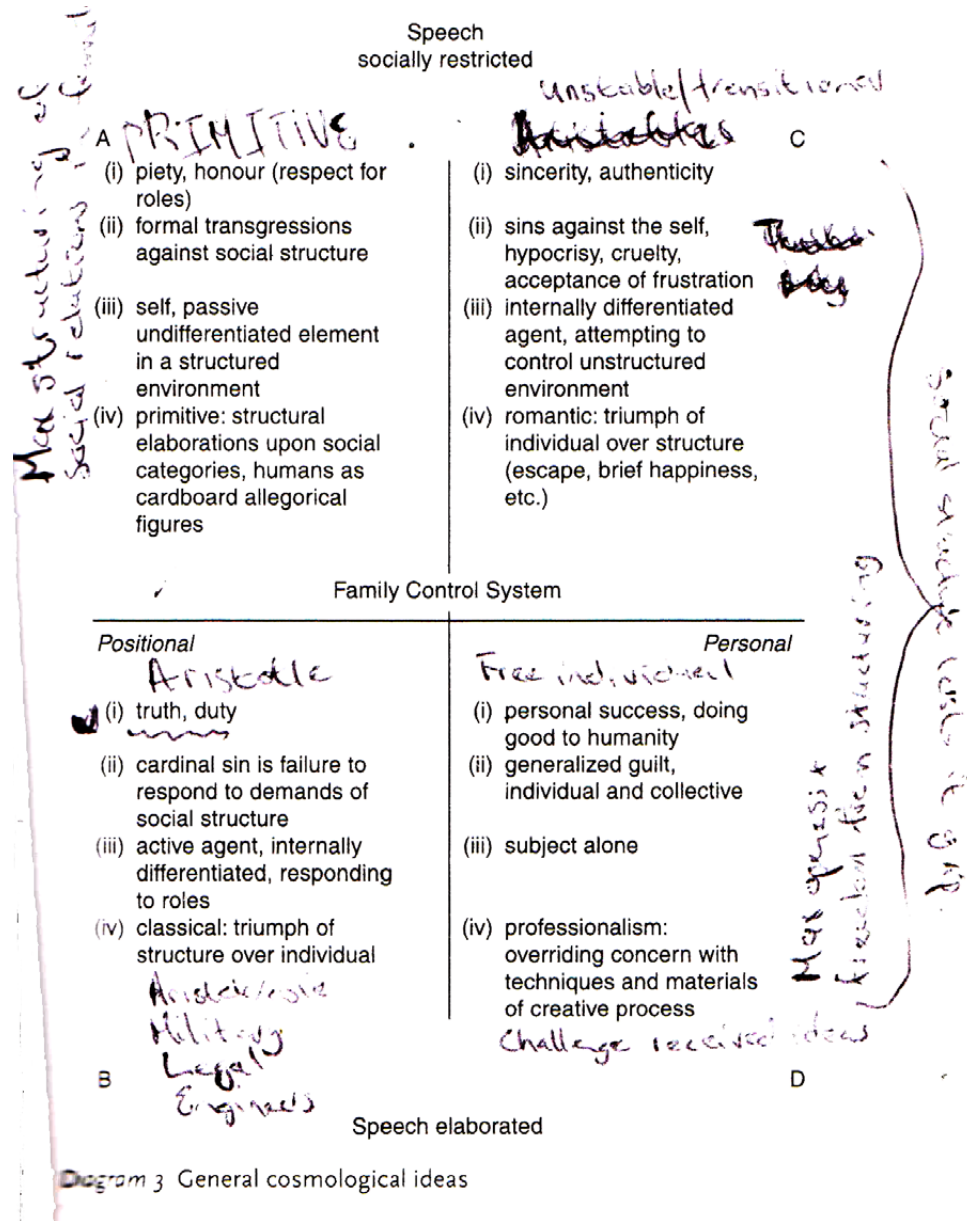 Speech
socially restricted
unstable/transitional
A PRIMITIVE
C
(i) piety, honour (respect for
roles)
(ii) formal transgressions
against social structure
(iii) self, passive
undifferentiated element
in a structured
environment
(iv) primitive: structural
elaborations upon social
categories, humans as
cardboard allegorical
figures
(i) sincerity, authenticity
(ii) sins against the self,
hypocrisy, cruelty,
acceptance of frustration
(iii) internally differentiated
agent, attempting to
control unstructured
environment
(iv) romantic: triumph of
individual over structure
(escape, brief happiness,
etc.)
Max structuring of
social relations in
Family Control System
Positional
Personal
Aristotle
Free individual
(i) truth, duty
(ii) cardinal sin is failure to
respond to demands of
social structure
(iii) active agent, internally
differentiated, responding
to roles
(iv) classical: triumph of
structure over individual
(i) personal success, doing
good to humanity
(ii) generalized guilt,
individual and collective
(iii) subject alone
(iv) professionalism:
overriding concern with
techniques and materials
of creative process
Military
Legal
Engineers
Challenge received ideas
Max
freedom from structuring
social structure
B
D
Speech elaborated
Diagram 3 General cosmological ideas